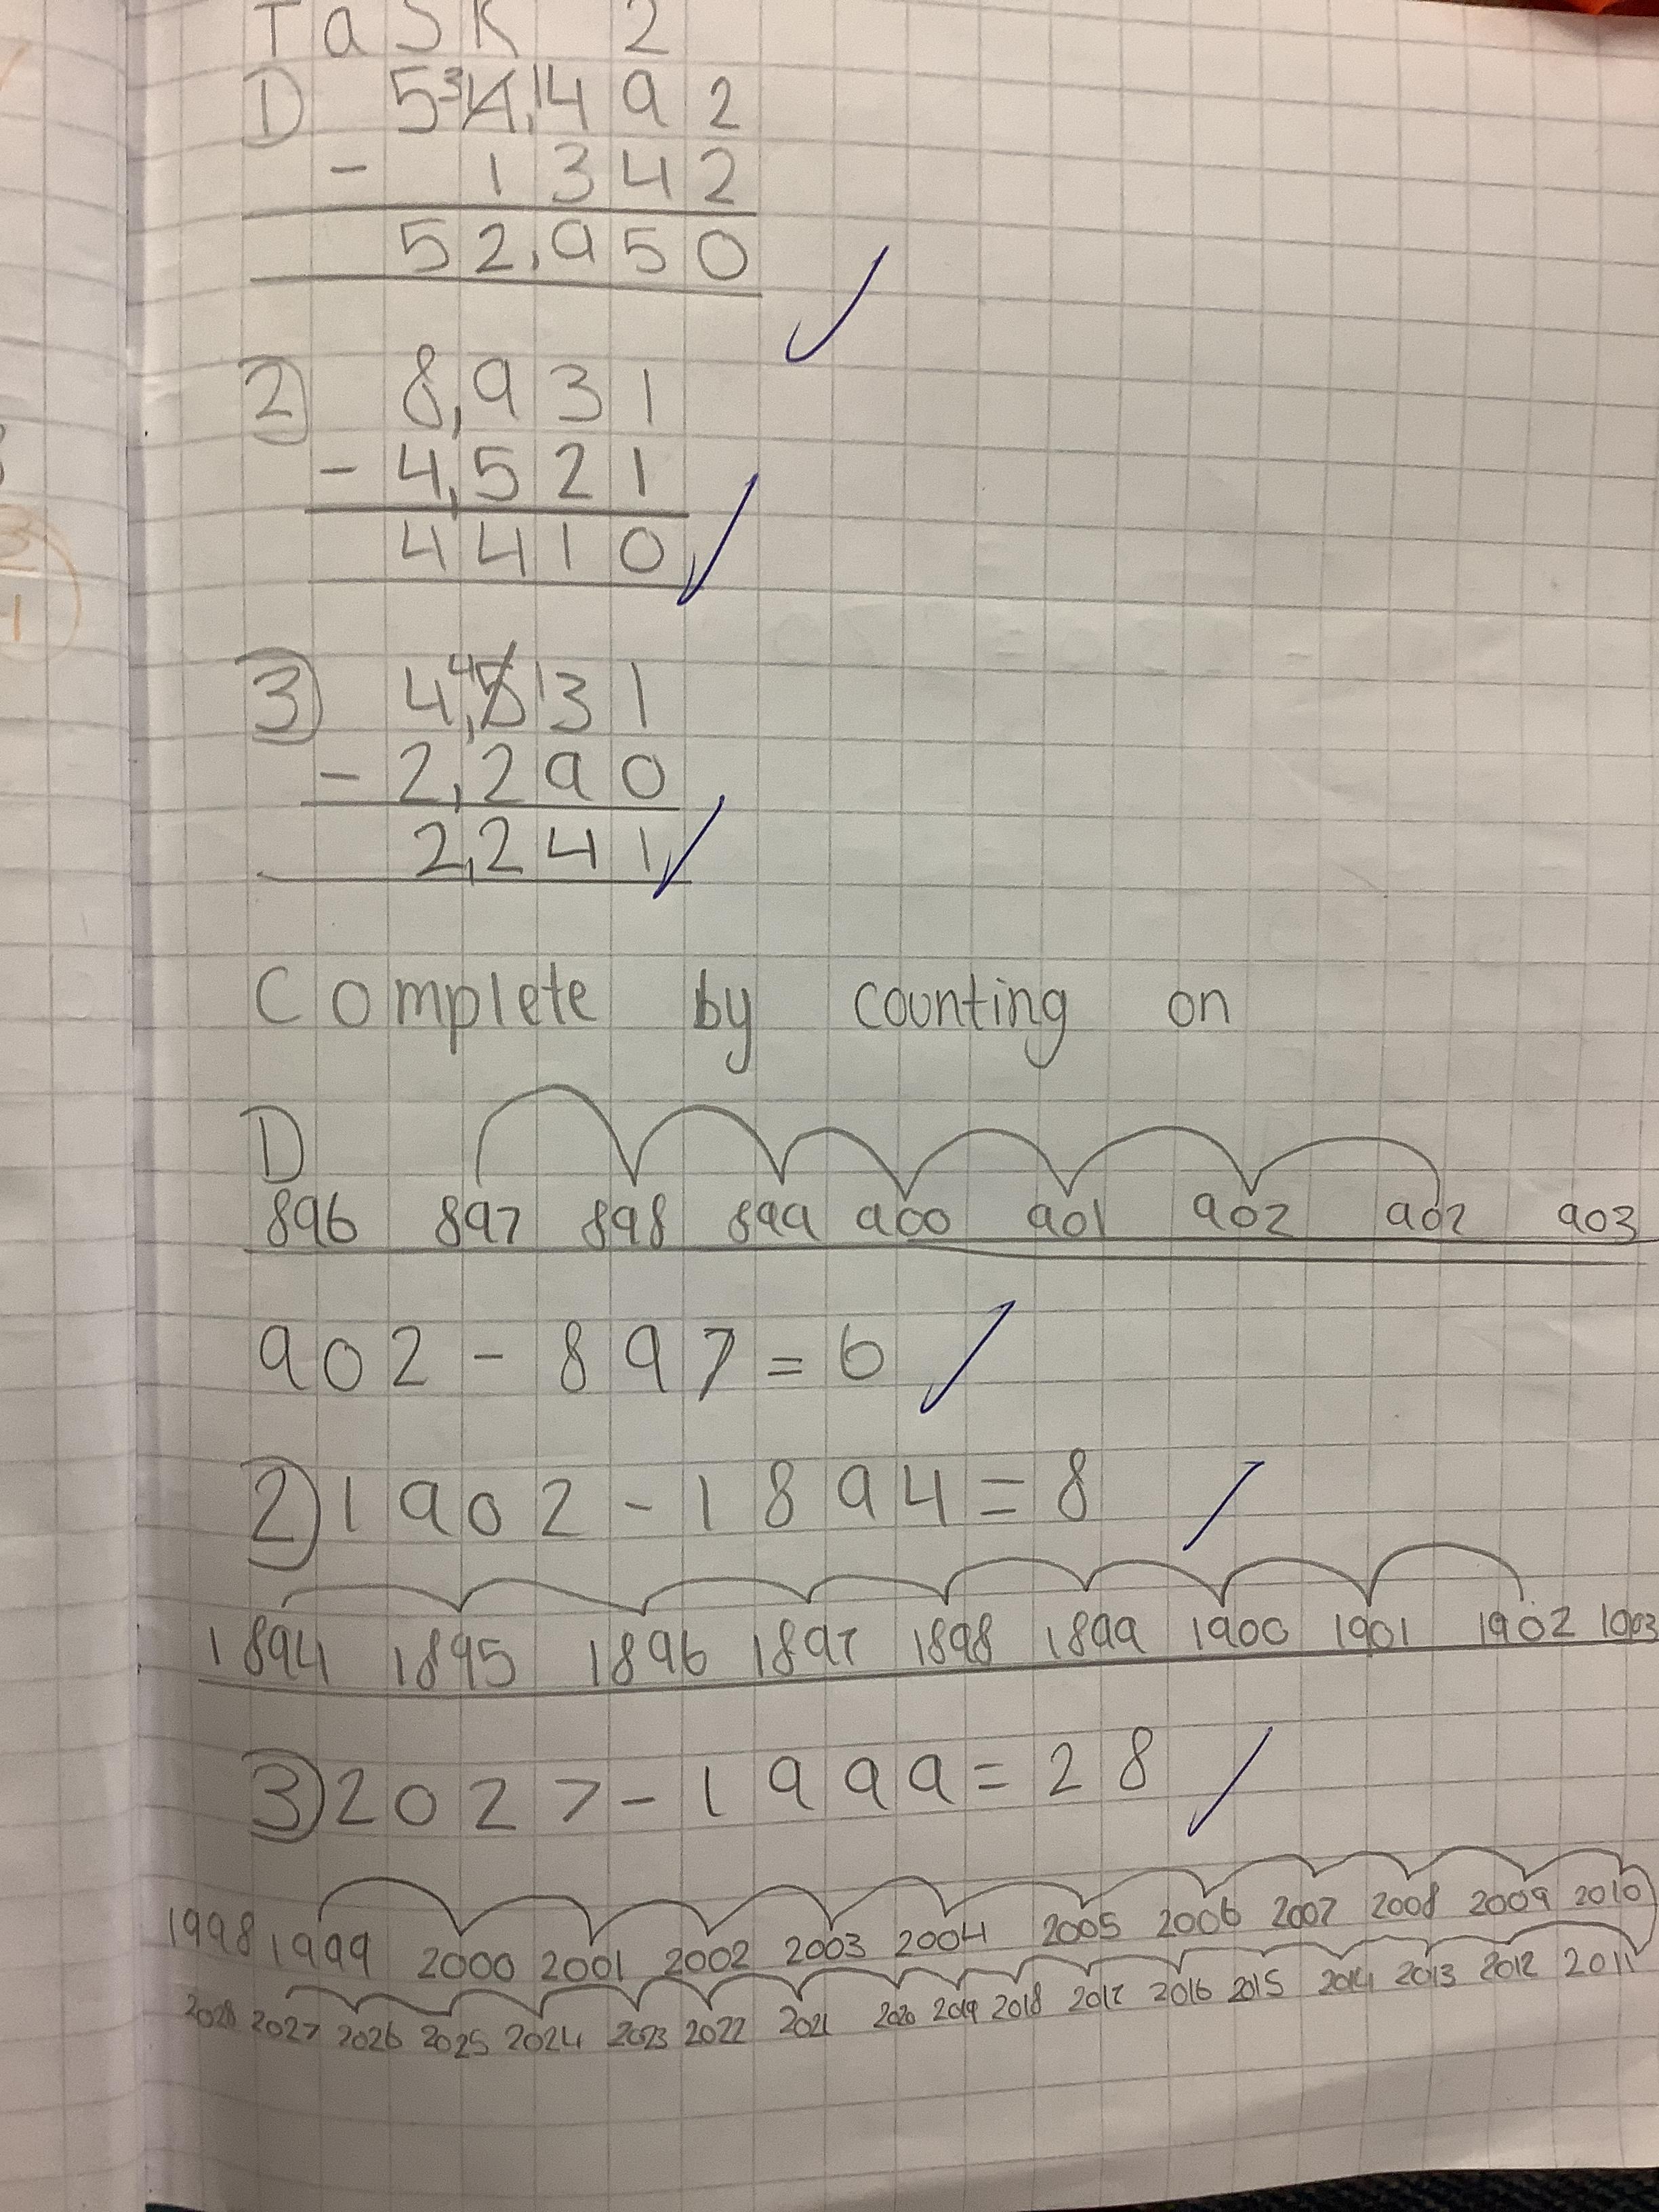 Task 2
1) 54,1492
- 1342
52,950
2) 8,931
- 4,521
4410
3) 4,45131
- 2,290
2,241
Complete by counting on
1)
896 897 898 899 900 901 902 902 903
902 - 897 = 6
2) 1902 - 1894 = 8
1894 1895 1896 1897 1898 1899 1900 1901 1902 1903
3) 2027 - 1999 = 28
1998 1999 2000 2001 2002 2003 2004 2005 2006 2007 2008 2009 2010
2028 2027 2026 2025 2024 2023 2022 2021 2020 2019 2018 2017 2016 2015 2014 2013 2012 2011